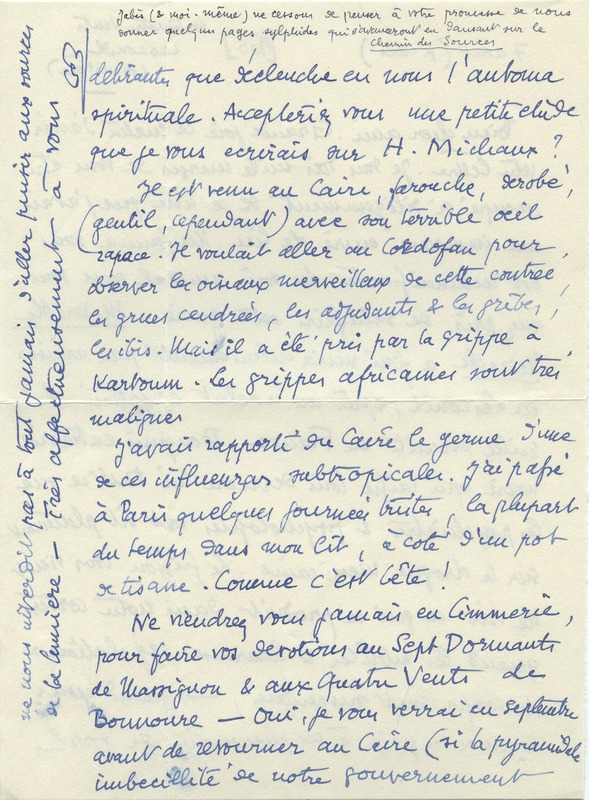 Jabès (& moi-même) ne cessons de penser à votre promesse de nous
donner quelques pages sylphides qui s'avanceront en dansant sur le
Chemin des Sources
délirantes que déclenche en nous l'automa
spirituale. Accepteriez vous une petite étude
que je vous écrirais sur H. Michaux ?
Il est venu au Caire, farouche, dérobé,
(gentil, cependant) avec son terrible oeil
rapace. Il voulait aller au Cordofan pour
observer les oiseaux merveilleux de cette contrée,
les grues cendrées, les adjudants & les grèbes,
les ibis. Mais il a été pris par la grippe à
Kartoum. Les grippes africaines sont très
malignes
J'avais rapporté du Caire le germe d'une
de ces influenzas subtropicales. J'ai passé
à Paris quelques journées tristes, la plupart
du temps dans mon lit, à côté d'un pot
de tisane. Comme c'est bête !
Ne viendrez vous jamais en Cimmerie,
pour faire vos dévotions au Sept Dormants
de Massignon & aux Quatre Vents de
Bounoure — Oui, je vous verrai en septembre
avant de retourner au Caire (si la pyramidale
imbecillité de notre gouvernement
ne nous interdit pas à tout jamais d'aller puiser aux sources
de la lumière — Très affectueusement à vous